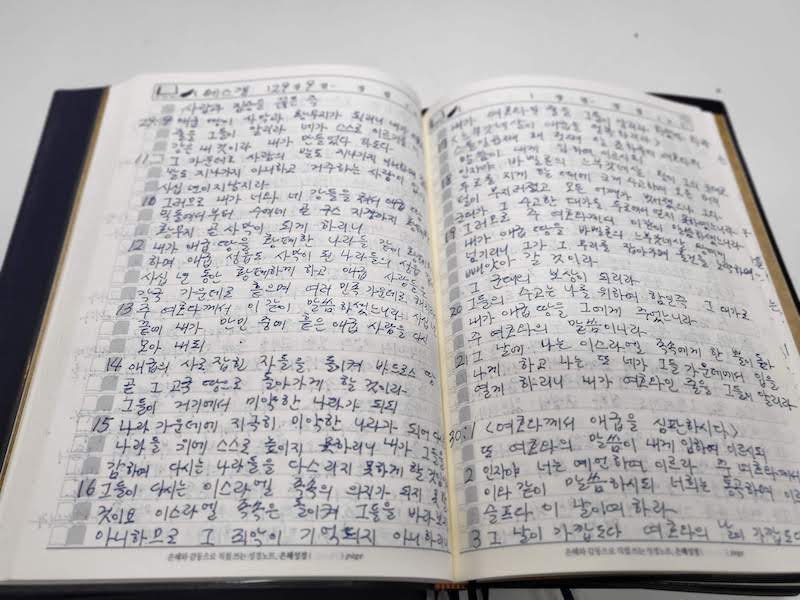 에스겔 29장 9절
사람과 짐승을 끊은 즉
29:9 애굽 땅이 사막과 황무지가 되리니 내가 여호와인
줄을 그들이 알리라 네가 스스로 이르기를
강은 내 것이라 내가 만들었다 하도다
11 그 가운데로 사람의 발도 지나가지 아니하며
발도 지나가지 아니하고 거주하는 사람이 없이
사십 년이 지날지라
10 그러므로 내가 너와 네 강들을 쳐서 애굽
믹돌에서부터 수에네 곧 구스 지경까지 황폐한
황무지 곧 사막이 되게 하리니
12 내가 애굽 땅을 황폐한 나라들 같이 황폐하게
하며 애굽 성읍도 사막이 된 나라들의 성읍
사십 년 동안 황폐하게 하고 애굽 사람들을
각국 가운데로 흩으며 여러 민족 가운데로 헤치리라
13 주 여호와께서 이같이 말씀하셨느니라 사십 년
끝에 내가 만민 중에 흩은 애굽 사람을 다시
모아 내되
14 애굽의 사로잡힌 자들을 돌이켜 바드로스 땅
곧 그 고국 땅으로 돌아가게 할 것이라
그들이 거기에서 미약한 나라가 되되
15 나라 가운데에 지극히 미약한 나라가 되어 다시는
나라들 위에 스스로 높이지 못하리니 내가 그들을
감하여 다시는 나라들을 다스리지 못하게 할 것임
16 그들이 다시는 이스라엘 족속의 의지가 되지 못할
것이요 이스라엘 족속은 돌이켜 그들을 바라보지
아니하므로 그 죄악이 기억되지 아니하리니
은혜와 감동으로 직접 쓰는 성경노트, 은혜성경 ( ) page
내가 여호와인 줄을 그들이 알리라
18 인자야 바벨론의 느부갓네살 왕이 그의 군대로
두로를 치게 할 때에 크게 수고하여 모든 머리
털이 무지러졌고 모든 어깨가 벗어졌으나 그와
군대가 그 수고한 대가를 두로에서 얻지 못하였느니라
19 그러므로 주 여호와께서 이같이 말씀하셨느니라
내가 애굽 땅을 바벨론의 느부갓네살 왕에게
넘기리니 그가 그 무리를 잡아가며 물건을 노략하며
빼앗아 갈 것이라
그 군대의 보상이 되리라
20 그들의 수고는 나를 위하여 함인즉 그 대가로
내가 애굽 땅을 그에게 주었느니라
주 여호와의 말씀이니라
21 그 날에 나는 이스라엘 족속에게 한 뿔이 돋아
나게 하고 나는 또 네가 그들 가운데에서 입을
열게 하리니 내가 여호와인 줄을 그들이 알리라
30:1 <여호와께서 애굽을 심판하시다>
또 여호와의 말씀이 내게 임하여 이르시되
2 인자야 너는 예언하여 이르라 주 여호와께서
이와 같이 말씀하시되 너희는 통곡하며 이르
슬프다 이 날이여 하라
3 그 날이 가깝도다 여호와의 날이 가깝도다
은혜와 감동으로 직접 쓰는 성경노트, 은혜성경 ( ) page